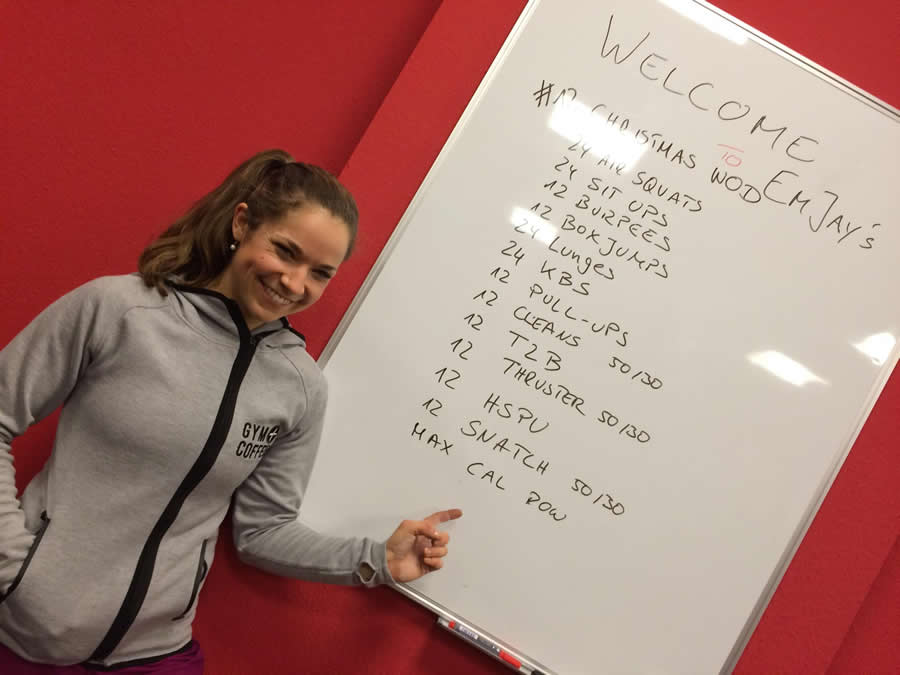 WELCOME
TO
EMJAY'S
#12 CHRISTMAS WOD
24 AIR SQUATS
24 SIT UPS
12 BURPEES
12 BOX JUMPS
24 Lunges
24 KBS
12 PULL-UPS
12 CLEANS 50/30
12 T2B
12 THRUSTER 50/30
12 HSPU
12 SNATCH 50/30
MAX CAL ROW
GYM+
COFFEE